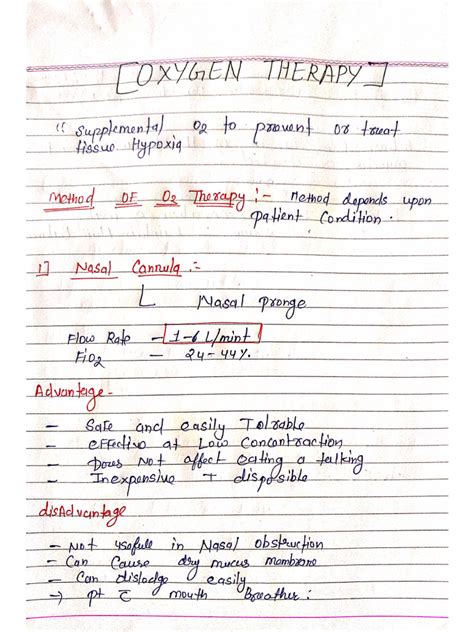 [OXYGEN THERAPY]
" Supplemental O2 to provent or treat
tissue Hypoxia
Method OF O2 Therapy :- Method depends upon
patient Condition.
1] Nasal Cannula :-
L Nasal pronge
Flow Rate - 1-6 L/mint
FiO2 - 24-44%.
Advantage -
- Safe and easily Tolrable
- effective at Low Concontraction
- Does Not affect eating a talking
- Inexpensive + disposible
disAdvantage
- Not usefull in Nasal obstruction
- Can Cause dry mucus membrane
- Can dislodge easily
→ pt c̄ mouth Breather :